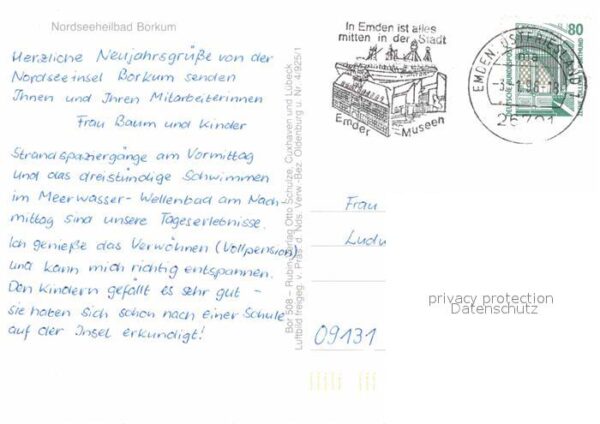 Nordseeheilbad Borkum
Herzliche Neujahrsgrüße von der
Nordseeinsel Borkum senden
Ihnen und Ihren Mitarbeiterinnen
Frau Baum und Kinder
Strandspaziergänge am Vormittag
und das dreistündige Schwimmen
im Meerwasser-Wellenbad am Nach-
mittag sind unsere Tageserlebnisse.
Ich genieße das Verwöhnen (Vollpension)
und kann mich richtig entspannen.
Den Kindern gefällt es sehr gut –
sie haben sich schon nach einer Schule
auf der Insel erkundigt!
Bor 508 – Rubin-Verlag Otto Schulze, Cuxhaven und Lübeck
Luftbild freigeg. v. Präs. d. Nds. Verw.-Bez. Oldenburg u. Nr. 4/925/1
In Emden ist alles
mitten in der Stadt
Emder Museen
EMDEN, OSTFRIESLAND
26721
80
DEUTSCHE BUNDESPOST
Frau
Ludw
09131
privacy protection
Datenschutz